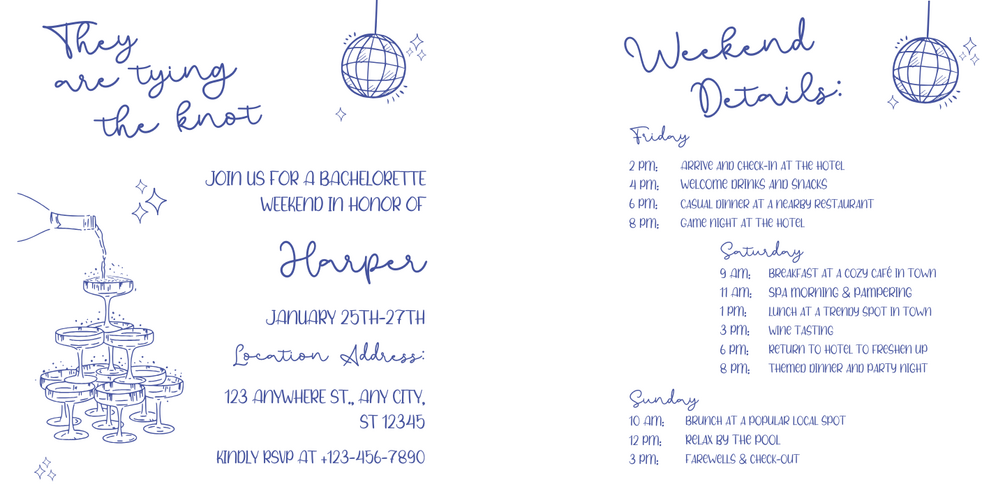 They
are tying
the knot
JOIN US FOR A BACHELORETTE
WEEKEND IN HONOR OF
Harper
JANUARY 25TH-27TH
Location Address:
123 ANYWHERE ST., ANY CITY,
ST 12345
KINDLY RSVP AT +123-456-7890
Weekend
Details:
Friday
2 PM: ARRIVE AND CHECK-IN AT THE HOTEL
4 PM: WELCOME DRINKS AND SNACKS
6 PM: CASUAL DINNER AT A NEARBY RESTAURANT
8 PM: GAME NIGHT AT THE HOTEL
Saturday
9 AM: BREAKFAST AT A COZY CAFÉ IN TOWN
11 AM: SPA MORNING & PAMPERING
1 PM: LUNCH AT A TRENDY SPOT IN TOWN
3 PM: WINE TASTING
6 PM: RETURN TO HOTEL TO FRESHEN UP
8 PM: THEMED DINNER AND PARTY NIGHT
Sunday
10 AM: BRUNCH AT A POPULAR LOCAL SPOT
12 PM: RELAX BY THE POOL
3 PM: FAREWELLS & CHECK-OUT